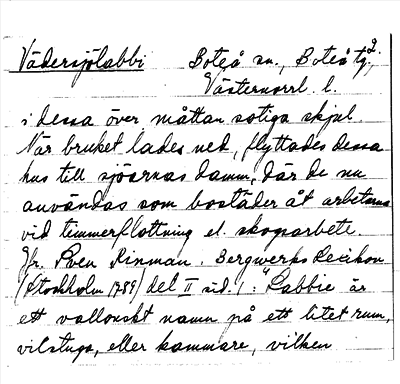 Vädersjölabbi Boteå sn., Boteå tg., 2.
Västernorrl. l.
i dessa över måttan sotiga skjul.
När bruket lades ned, flyttades dessa
hus till sjöarnas damm, där de nu
användas som bostäder åt arbetarna
vid timmerflottning el. skogsarbete.
Jfr. Sven Rinman. Bergwerks Lexikon
(Stockholm 1789) del II sid. 1: "Labbie är
ett vallonskt namn på ett litet rum,
vilstuga, eller kammare, vilken